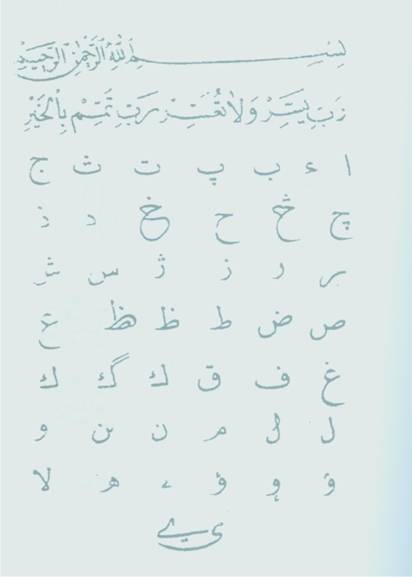 بسم الله الرحمن الرحيم
رب يسر ولا تعسر رب تمم بالخير
ا ء ب پ ت ث ج
چ څ ح خ د ذ
ر ز ژ س
ص ض ط ظ ع
غ ف ق ك گ ك
ل م ن و
ؤ ۏ ء ه لا
ي ے